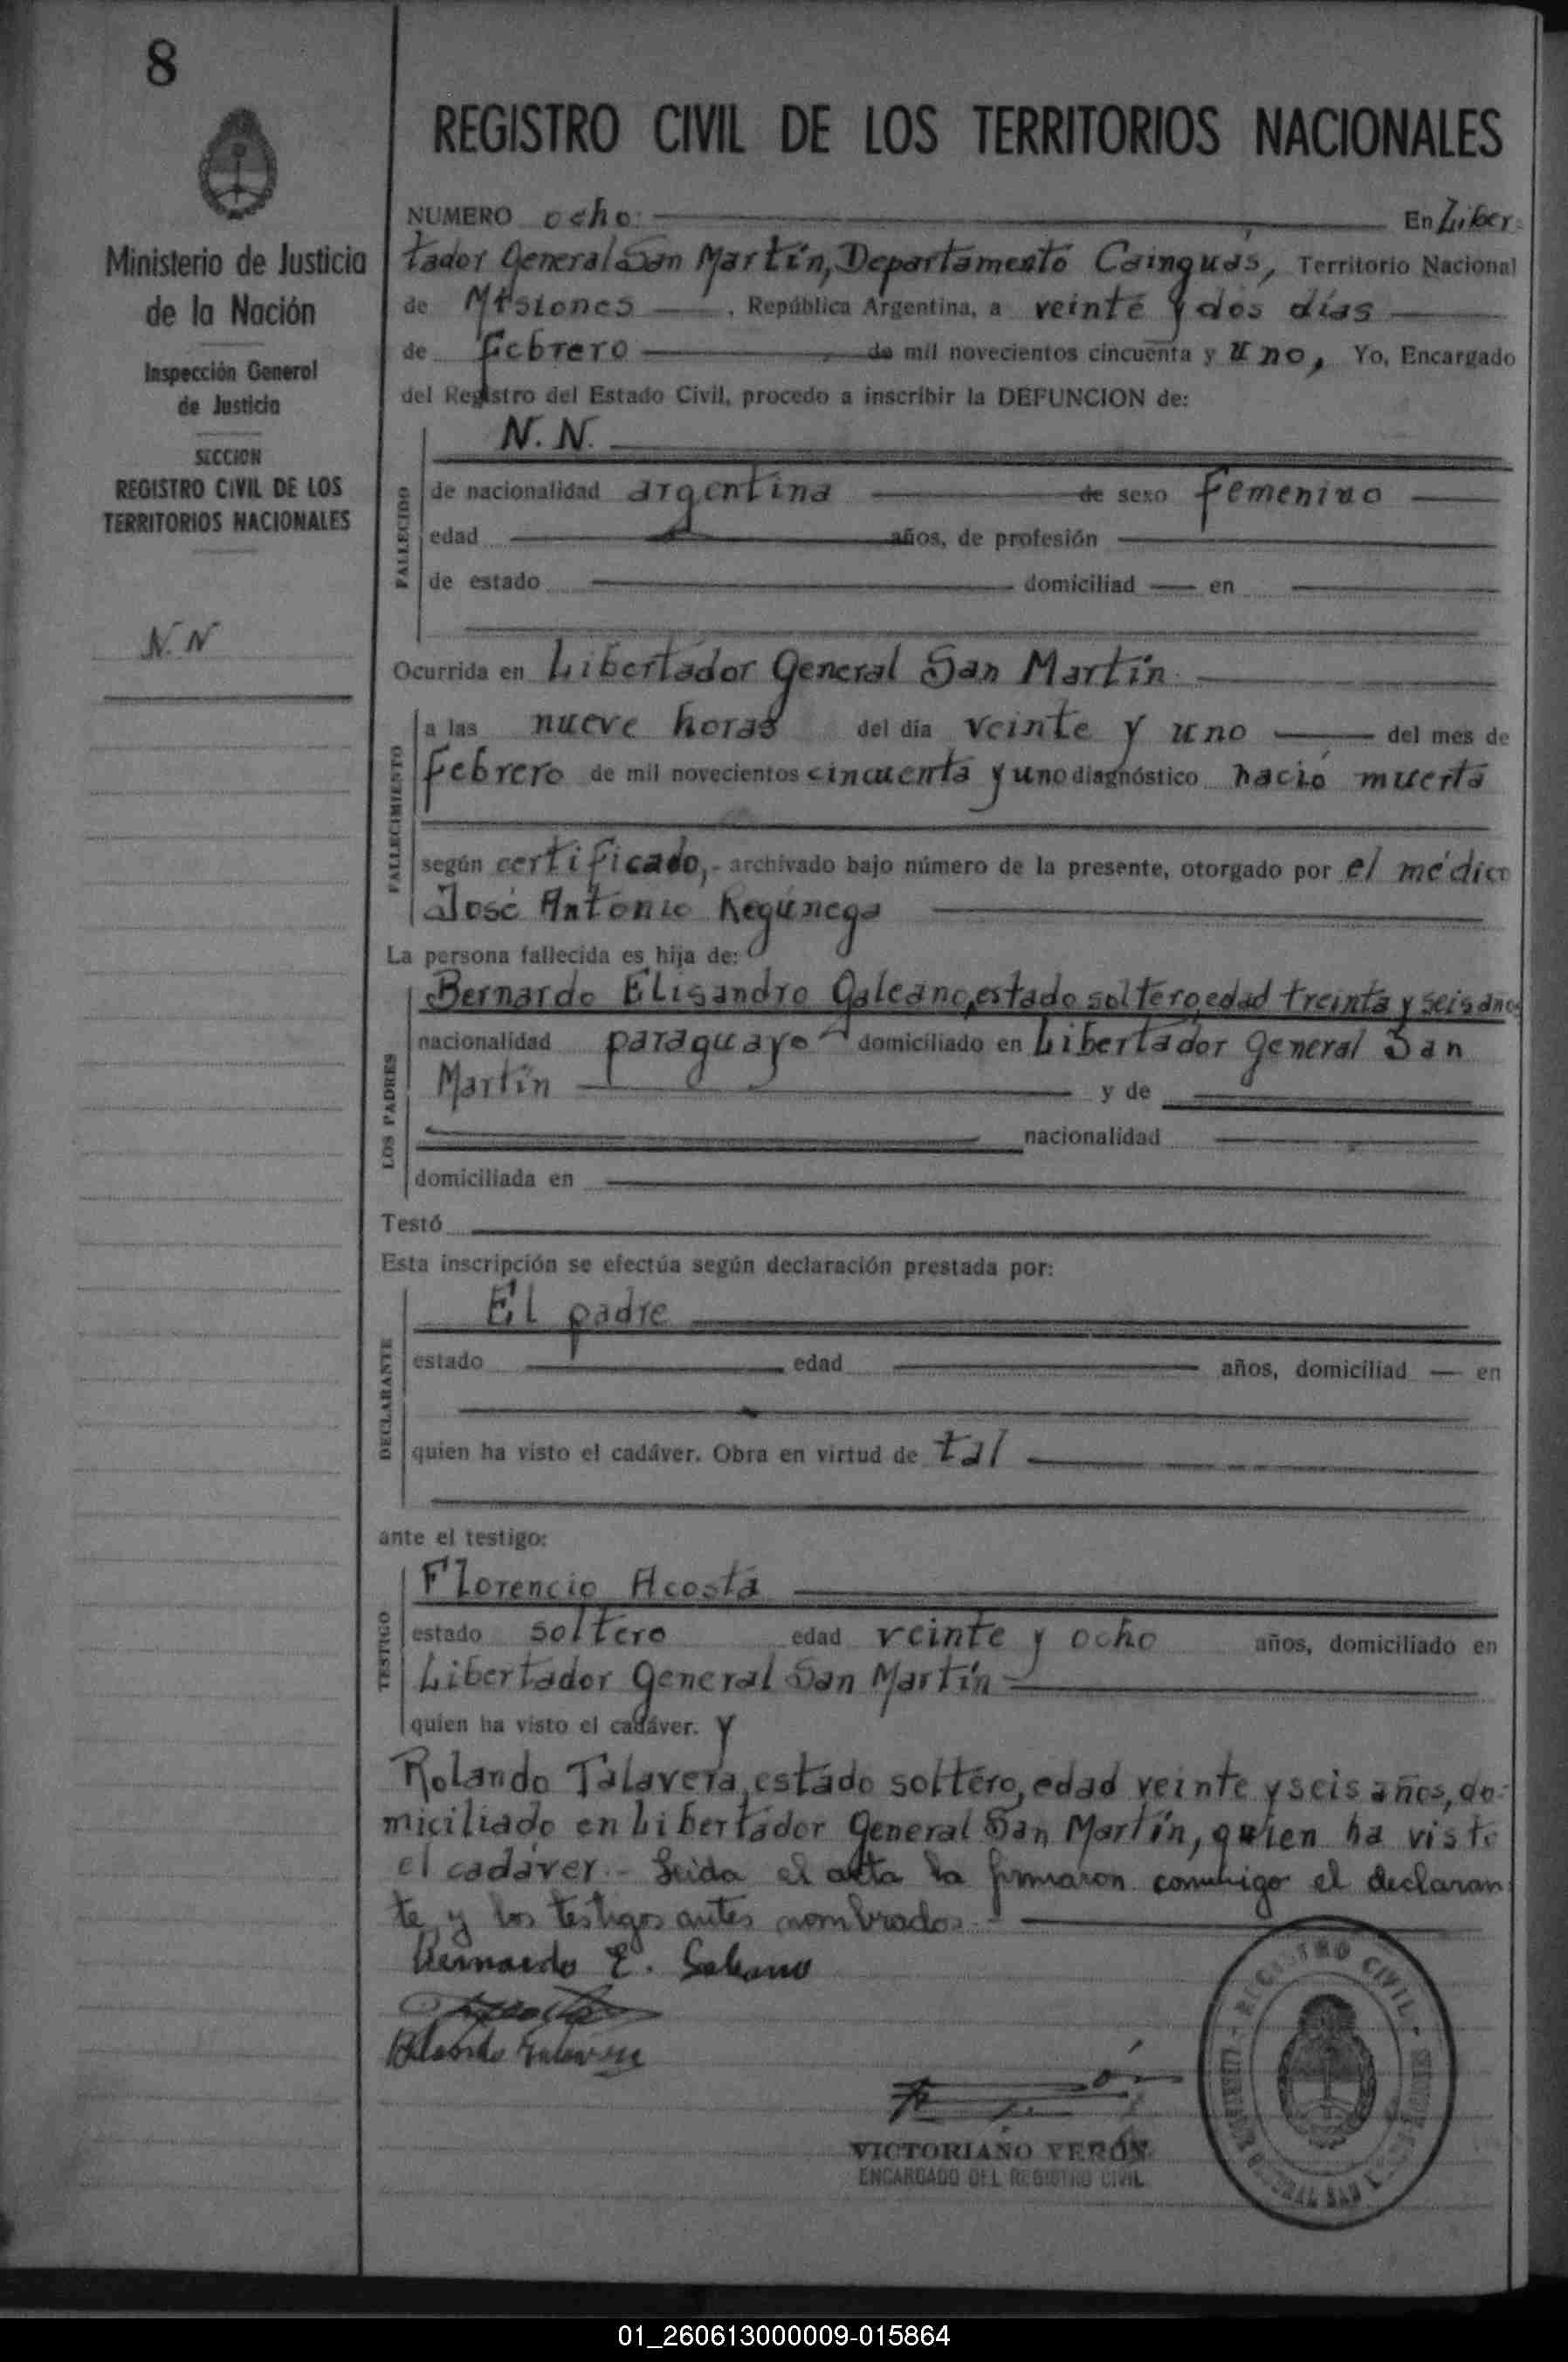 8
REGISTRO CIVIL DE LOS TERRITORIOS NACIONALES
Ministerio de Justicia
de la Nación
Inspección General
de Justicia
SECCION
REGISTRO CIVIL DE LOS
TERRITORIOS NACIONALES
N. N
NUMERO ocho. En Liber-
tador General San Martín, Departamento Cainguás, Territorio Nacional
de Misiones, República Argentina, a veinte y dos días
de Febrero de mil novecientos cincuenta y uno, Yo, Encargado
del Registro del Estado Civil, procedo a inscribir la DEFUNCION de:
FALLECIDO
N. N.
de nacionalidad argentina de sexo femenino
edad años, de profesión
de estado domiciliad en
Ocurrida en Libertador General San Martín
FALLECIMIENTO
a las nueve horas del día veinte y uno del mes de
febrero de mil novecientos cincuenta y uno diagnóstico nació muerta
según certificado,- archivado bajo número de la presente, otorgado por el médico
José Antonio
La persona fallecida es hija de:
LOS PADRES
Bernardo Elisandro Galeano, estado soltero, edad treinta y seis años
nacionalidad paraguayo domiciliado en Libertador General San
Martín y de
nacionalidad
domiciliada en
Testó
Esta inscripción se efectúa según declaración prestada por:
DECLARANTE
El padre
estado edad años, domiciliad en
quien ha visto el cadáver. Obra en virtud de tal
ante el testigo:
TESTIGO
Florencio Acosta
estado soltero edad veinte y ocho años, domiciliado en
Libertador General San Martín
quien ha visto el cadáver. y
Rolando Talavera, estado soltero, edad veinte y seis años, do-
miciliado en Libertador General San Martín, quien ha visto
el cadáver.- Leida el acta la firmaron conmigo el declaran-
te y los testigos antes nombrados.-
Bernardo E. Galeano
Rolando Talavera
VICTORIANO VERÓN
ENCARGADO DEL REGISTRO CIVIL
REGISTRO CIVIL
01_260613000009-015864